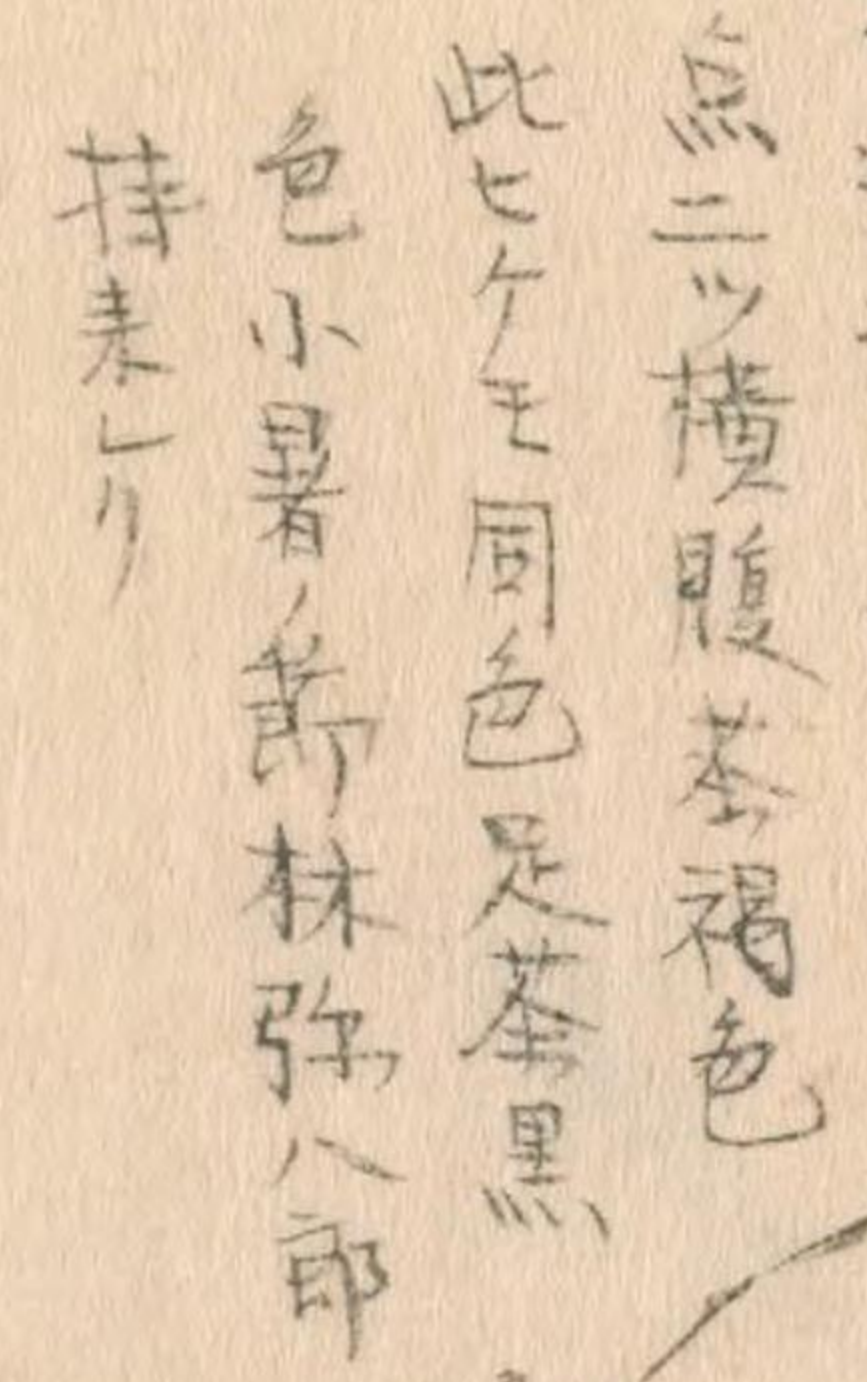 点二ツ横腹茶褐色
此ヒケモ同色足茶黒
色小暑ノ節林弥八郎
持来レリ